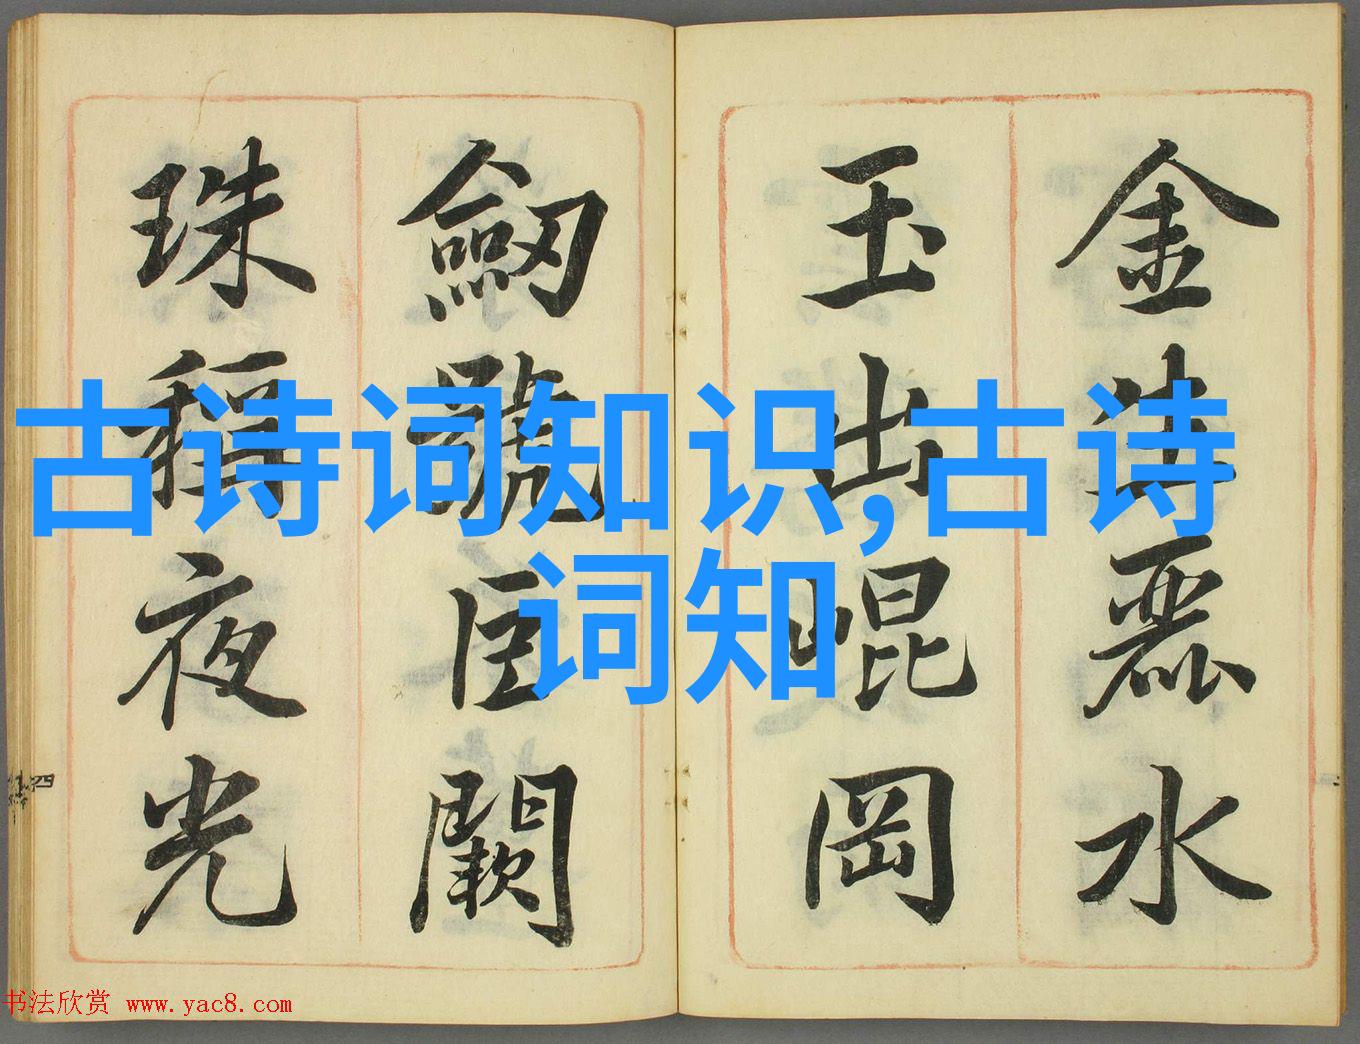 古诗词知识,古诗
词知
金生麗水
玉出崐岡
劒號巨闕
珠稱夜光
四
书法欣赏 www.yac8.com